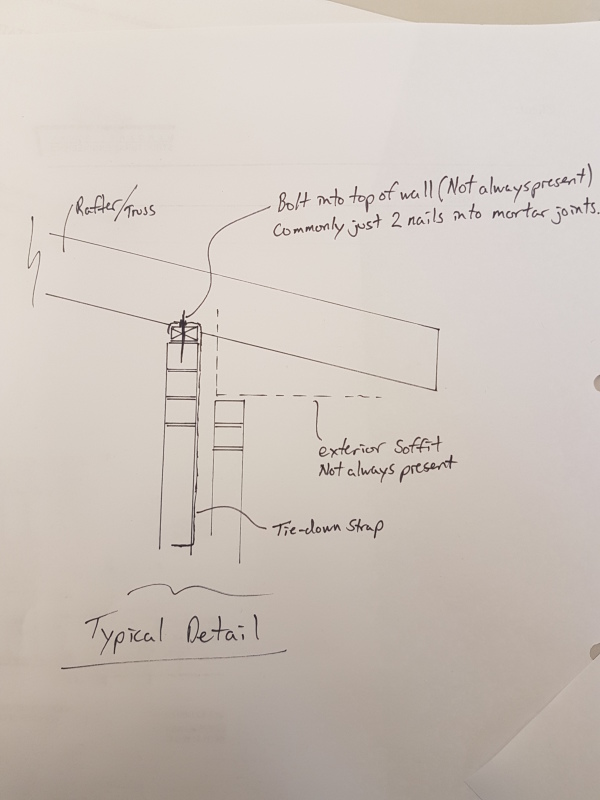 Rafter/Truss
Bolt into top of wall (Not always present)
Commonly just 2 nails into mortar joints.
exterior Soffit
Not always present
Tie-down strap
Typical Detail